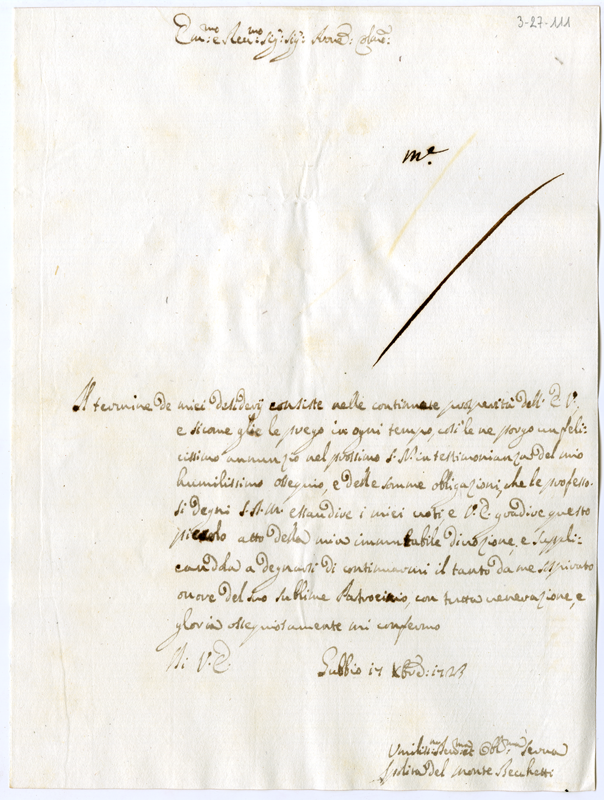 3-27-111
Em:mo e Rev:mo Sig: Sig:
me.
Il termine de miei desiderij consiste nelle continuate prosperità dell' E. V.
e sicome glie le prego in ogni tempo, così le ne porgo un feli-
cissimo annunzio nel prossimo S. N. in testimonianza del mio
humilissimo ossequio, e delle somme obligazioni, che le professo.
Si degni S. D. M. essaudire i miei voti e V. E. gradire questo
piccolo atto della mia immutabile divozione, e suppli-
candola a degnarsi di continuarmi il tanto da me stimato
onore del suo sublime Patrocinio, con tutta venerazione, e
gloria ossequiosamente mi confermo
Di V. E.
Gubbio 17 Xbre: 1723
Umiliss:ma Obl:ma Serva
del Monte Becchetti